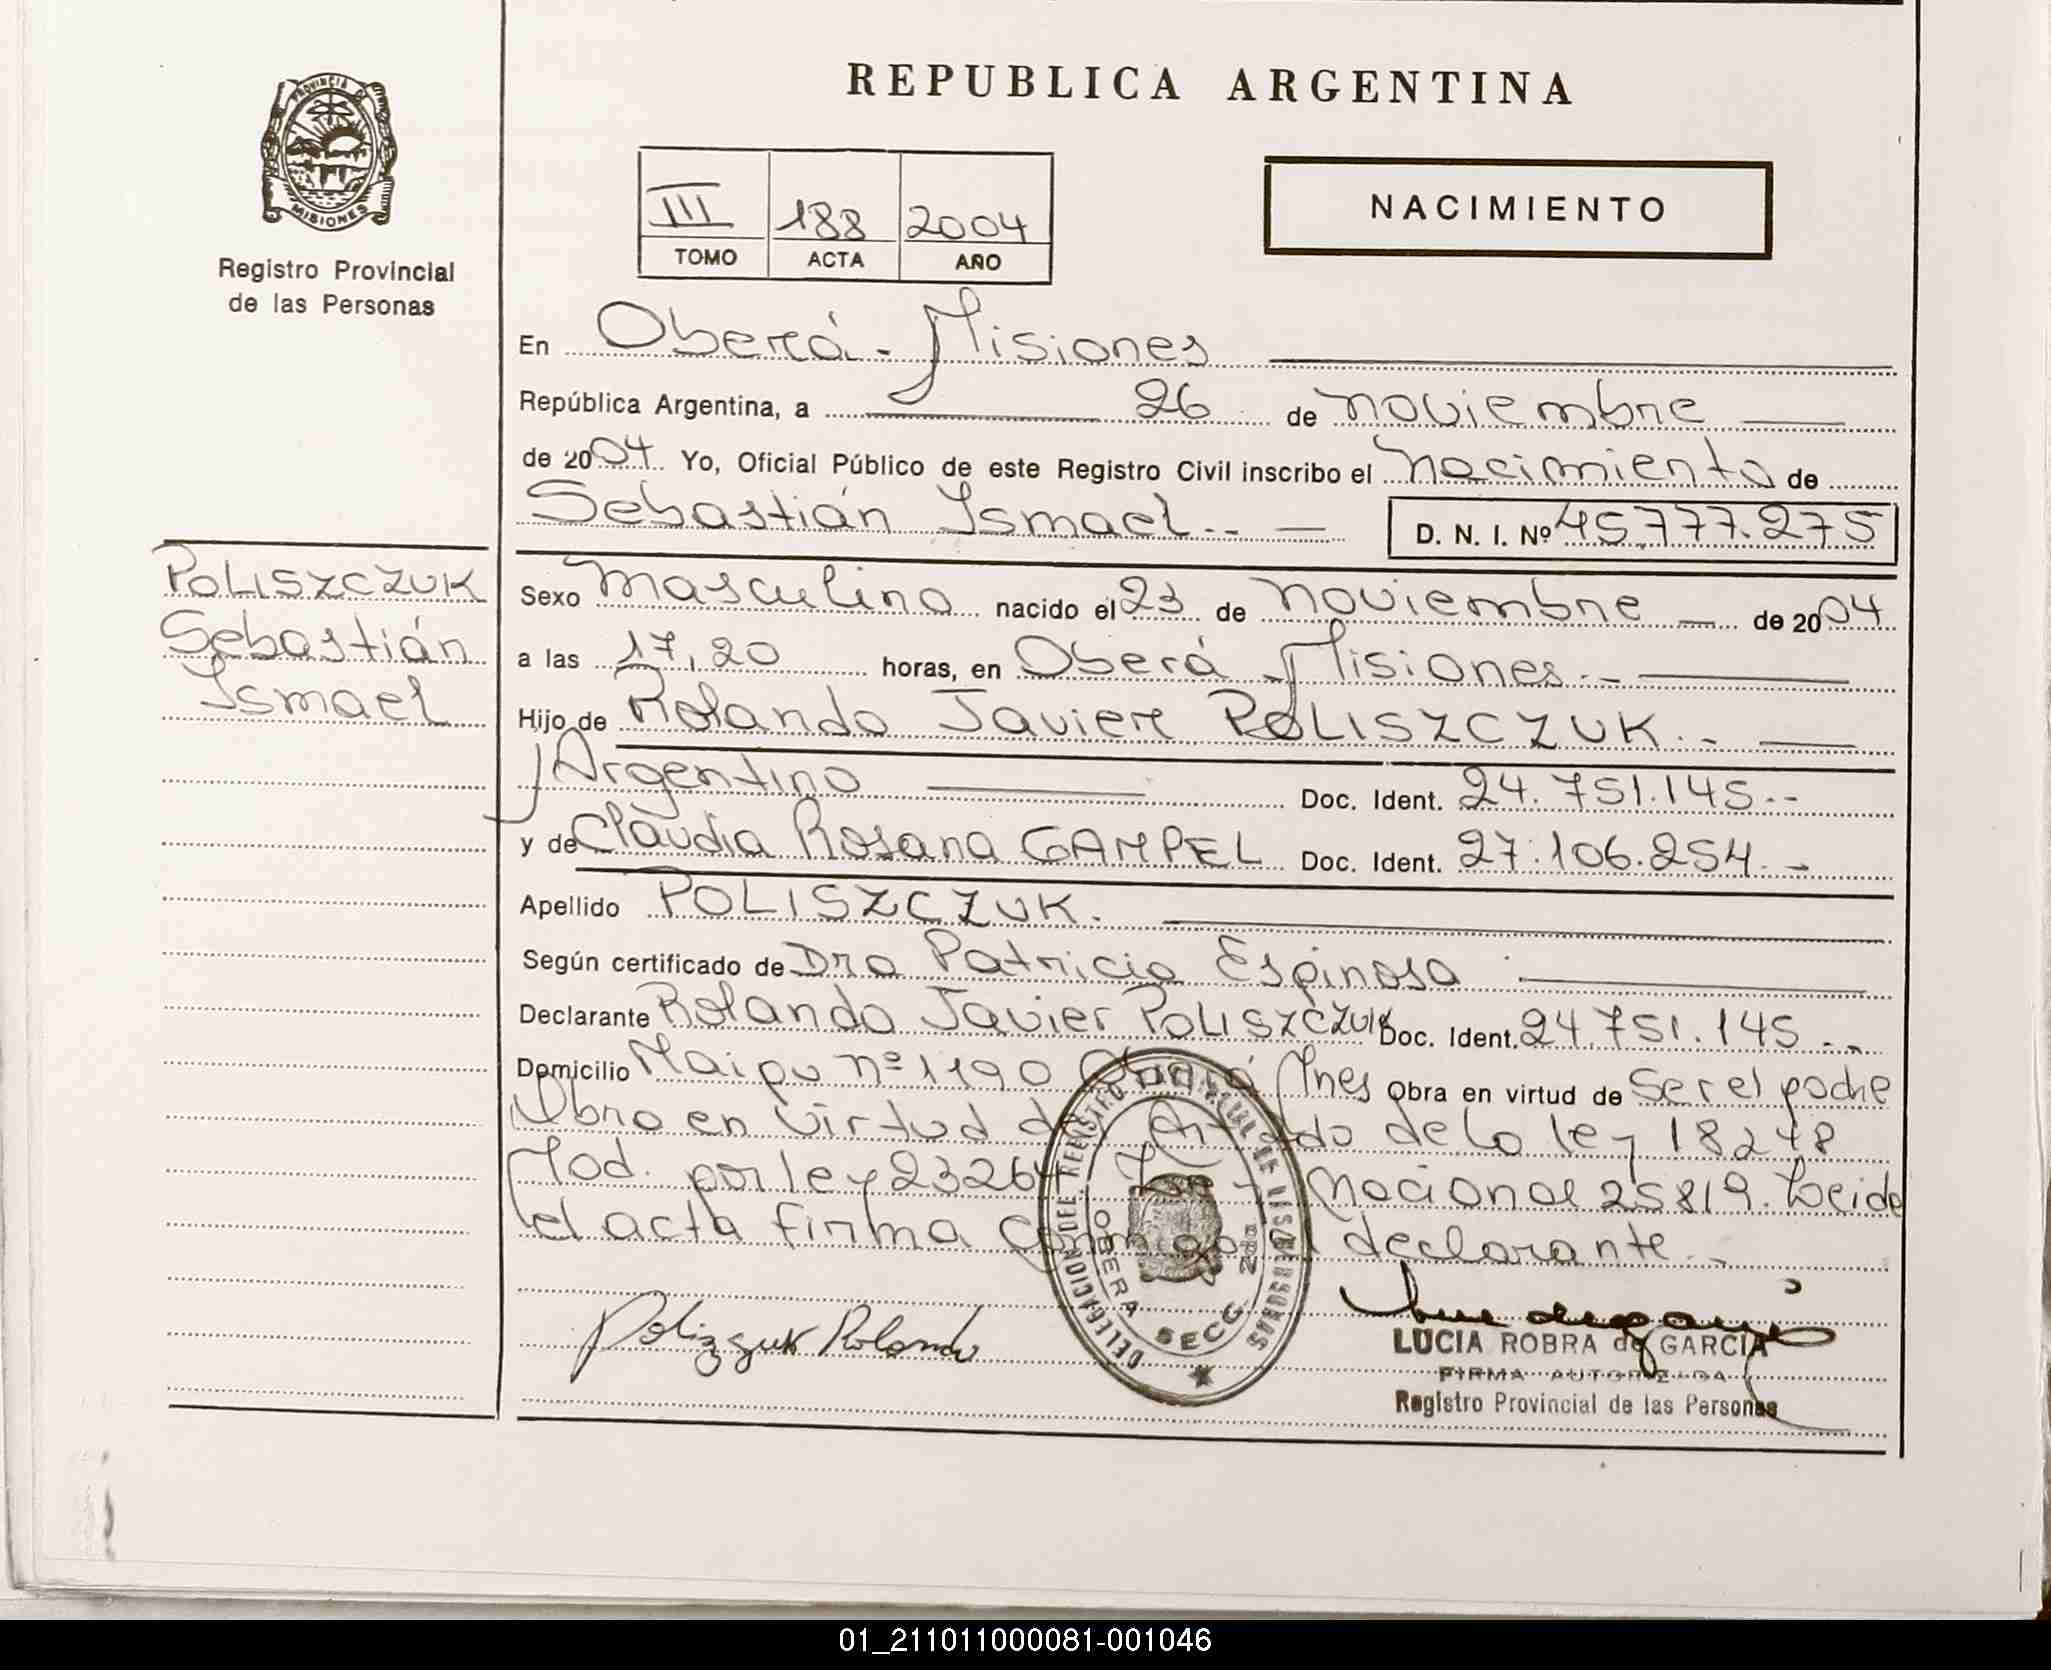 REPUBLICA ARGENTINA
PROVINCIA DE
MISIONES
Registro Provincial
de las Personas
III 188 2004
TOMO ACTA AÑO
NACIMIENTO
En Oberá - Misiones
República Argentina, a 26 de noviembre
de 2004. Yo, Oficial Público de este Registro Civil inscribo el nacimiento de
Sebastián Ismael.- D. N. I. Nº 45.777.275
POLISZCZUK
Sebastián
Ismael
Sexo masculino nacido el 23 de noviembre de 2004
a las 17,20 horas, en Oberá Misiones.-
Hijo de Rolando Javier POLISZCZUK.-
Argentino Doc. Ident. 24.751.145.-
y de Claudia Rosana GAMPEL Doc. Ident. 27.106.254.-
Apellido POLISZCZUK.
Según certificado de Dra Patricia Espinosa
Declarante Rolando Javier POLISZCZUK Doc. Ident. 24.751.145.-
Domicilio Maipu nº 1190 Oberá Mnes Obra en virtud de Ser el padre
Obra en virtud de de la ley 18248
Mod. por ley 23264 Nacional 25819. Leida
el acta firma conmigo el declarante.-
Polizszuk Rolando
DELEGACION DEL REGISTRO PROVINCIAL DE LAS PERSONAS
OBERA SECC. 2da
LUCIA ROBRA de GARCIA
FIRMA AUTORIZADA
Registro Provincial de las Personas
01_211011000081-001046